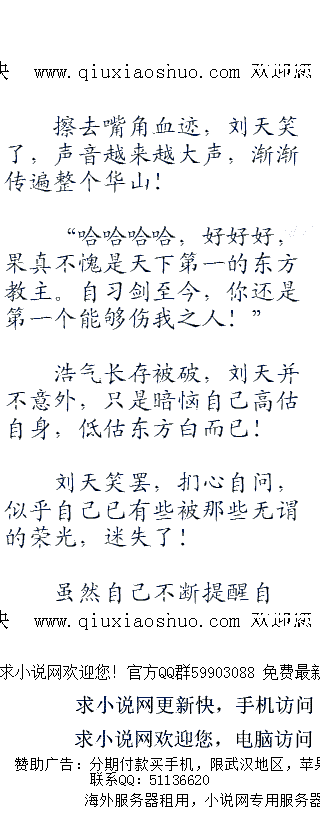 快 www.qiuxiaoshuo.com 欢迎您
擦去嘴角血迹，刘天笑
了，声音越来越大声，渐渐
传遍整个华山！
“哈哈哈哈，好好好，
果真不愧是天下第一的东方
教主。自习剑至今，你还是
第一个能够伤我之人！”
浩气长存被破，刘天并
不意外，只是暗恼自己高估
自身，低估东方白而已！
刘天笑罢，扪心自问，
似乎自己已有些被那些无谓
的荣光，迷失了！
虽然自己不断提醒自
快 www.qiuxiaoshuo.com 欢迎您
求小说网欢迎您！官方QQ群59903088 免费最新
求小说网更新快，手机访问
求小说网欢迎您，电脑访问
赞助广告：分期付款买手机，限武汉地区，苹果
联系QQ：51136620
海外服务器租用，小说网专用服务器